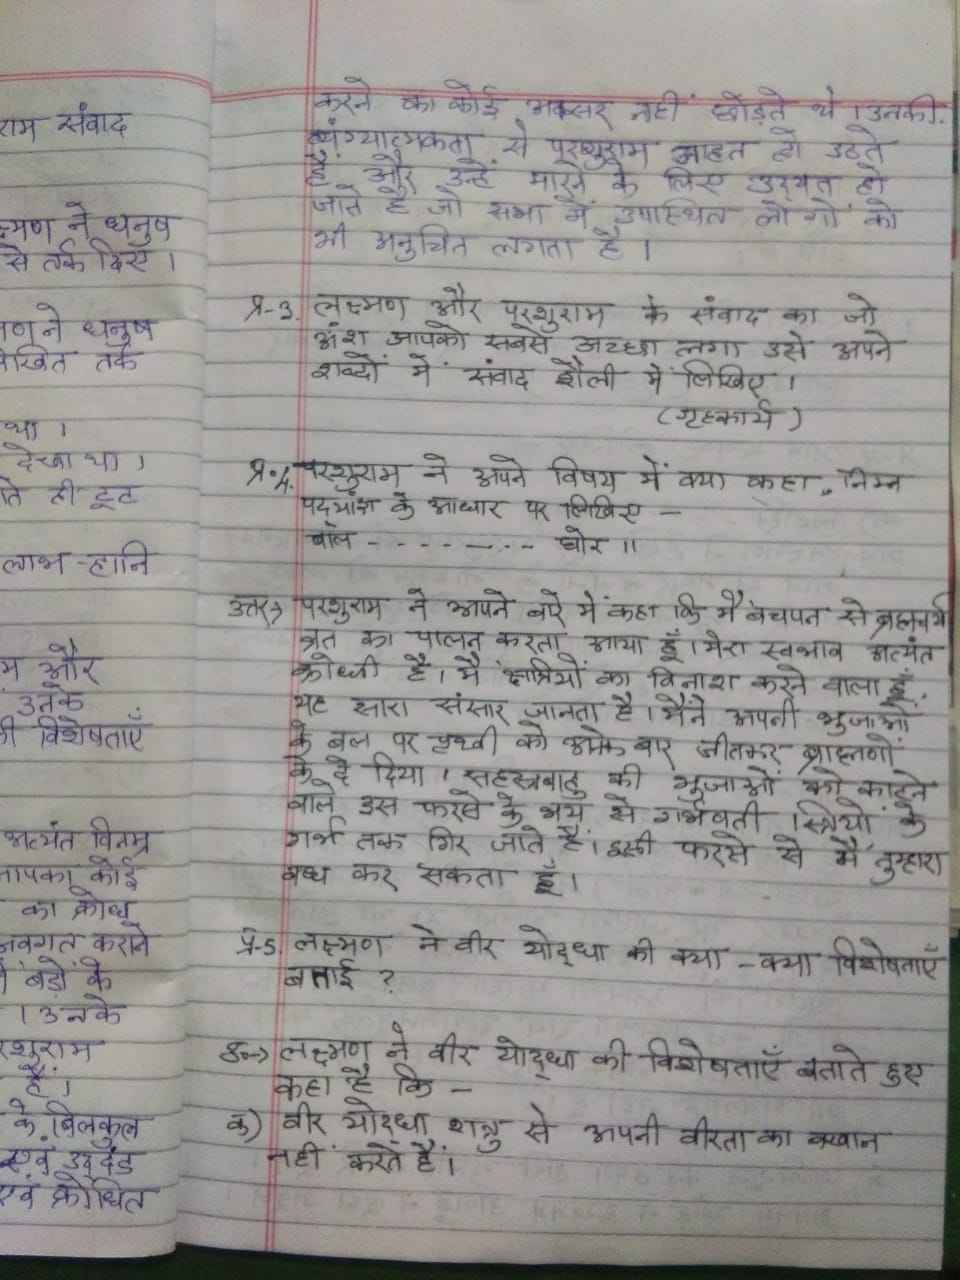 राम संवाद
क्ष्मण ने धनुष
से तर्क दिए।
मण ने धनुष
लिखित तर्क
था।
देखा था।
ते ही टूट
लाभ-हानि
म और
उनके
की विशेषताएँ
अत्यंत विनम्र
आपका कोई
का क्रोध
अवगत कराने
बड़ों के
। उनके
रशुराम
हैं।
के बिलकुल
एवं उद्दंड
एवं क्रोधित
करने का कोई अवसर नहीं छोड़ते थे। उनकी
व्यंग्यात्मकता से परशुराम आहत हो उठते
हैं और उन्हें मारने के लिए उद्यत हो
जाते हैं जो सभा में उपस्थित लोगों को
भी अनुचित लगता है।
प्र-3. लक्ष्मण और परशुराम के संवाद का जो
अंश आपको सबसे अच्छा लगा उसे अपने
शब्दों में संवाद शैली में लिखिए।
(गृहकार्य)
प्र.4. परशुराम ने अपने विषय में क्या कहा, निम्न
पद्यांश के आधार पर लिखिए -
बाल - - - - - - - - घोर॥
उत्तर→ परशुराम ने अपने बारे में कहा कि मैं बचपन से ब्रह्मचर्य
व्रत का पालन करता आया हूँ। मेरा स्वभाव अत्यंत
क्रोधी है। मैं क्षत्रियों का विनाश करने वाला हूँ,
यह सारा संसार जानता है। मैंने अपनी भुजाओं
के बल पर पृथ्वी को अनेक बार जीतकर ब्राह्मणों
के दे दिया। सहस्त्रबाहु की भुजाओं को काटने
वाले उस फरसे के भय से गर्भवती स्त्रियों के
गर्भ तक गिर जाते हैं। इसी फरसे से मैं तुम्हारा
वध कर सकता हूँ।
प्र-5. लक्ष्मण ने वीर योद्धा की क्या-क्या विशेषताएँ
बताई?
उ०→ लक्ष्मण ने वीर योद्धा की विशेषताएँ बताते हुए
कहा है कि -
क) वीर योद्धा शत्रु से अपनी वीरता का बखान
नहीं करते हैं।